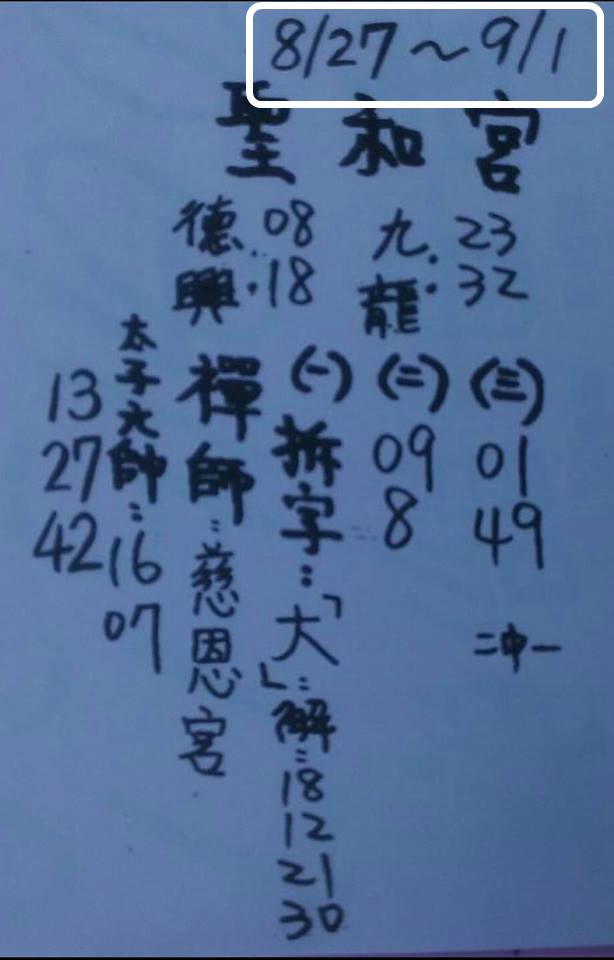 8/27～9/1
聖和宮
九龍：23 32
德興：08 18
(三) 01 49 二中一
(二) 09 8
(一) 拆字：「大」：解：18 12 21 30
禪師：慈恩宮
太子元帥：16 07
13 27 42